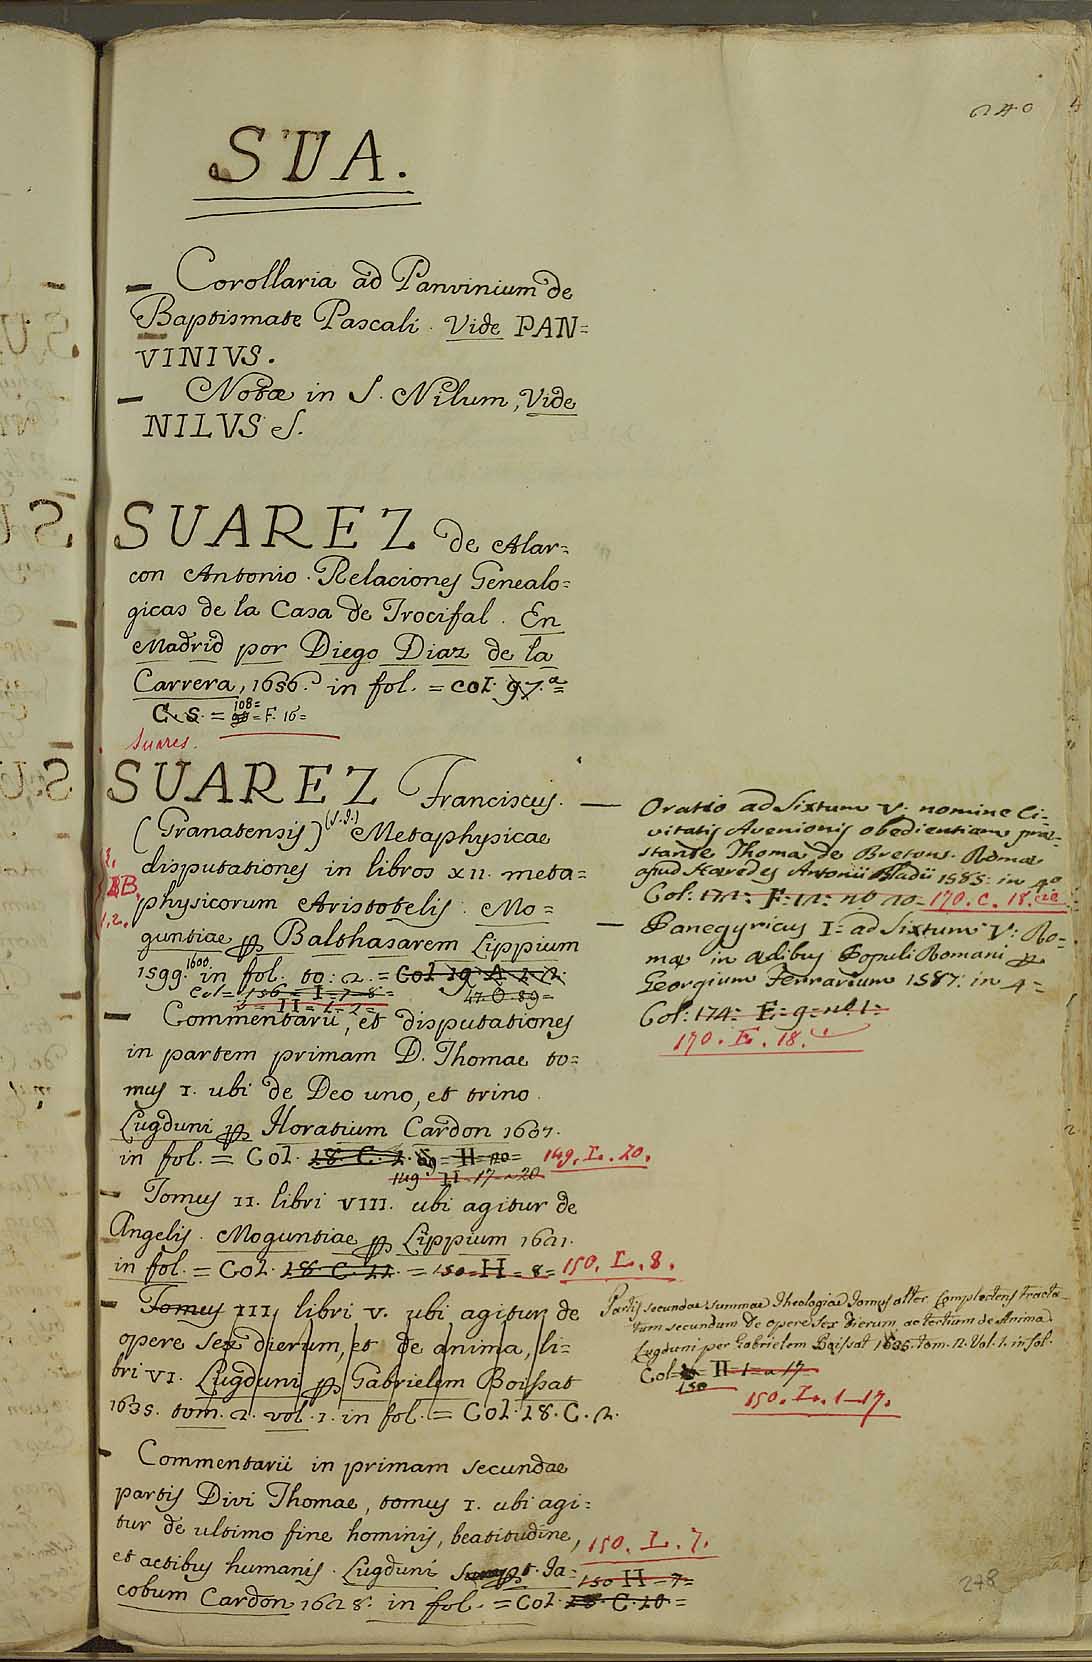 240
SUA.
— Corollaria ad Panvinium de
Baptismate Pascali. Vide PAN=
VINIVS.
— Notæ in S. Nilum, Vide
NILVS S.
SUAREZ de Alar=
con Antonio. Relaciones Genealo=
gicas de la Casa de Trocifal. En
Madrid por Diego Diaz de la
Carrera, 1656. in fol. = Col. 97.ª=
C. S. = 108= F. 16=
Suares.
SUAREZ Franciscus.
(Granatensis) (S.J.) Metaphysicae
disputationes in libros XII. meta=
physicorum Aristotelis. Mo=
guntiae Balthasarem Lippium
1599. 1600. in fol. to: 2. = Col 19 A 1 2.
Col= 156 = I = 7=8= 47.O.89=
= II = 1=2=
— Commentarii, et disputationes
in partem primam D. Thomae to=
mus I. ubi de Deo uno, et trino.
Lugduni Horatium Cardon 1607.
in fol. = Col. 18. C. 1. = H=20= 149. L. 20.
149 II 17=20
— Tomus II. libri VIII. ubi agitur de
Angelis. Moguntiae Lippium 1621.
in fol. = Col. 18 C. 11. = 150=H=8= 150. L. 8.
— Tomus III, libri V. ubi agitur de
opere sex dierum, et de anima, li=
bri VI. Lugduni Gabrielem Boissat
1635. tom. 2. vol. 1. in fol. = Col. 18. C. 2.
— Commentarii in primam secundae
partis Divi Thomae, tomus I. ubi agi=
tur de ultimo fine hominis, beatitudine,
et actibus humanis. Lugduni Ja=
cobum Cardon 1628. in fol. = Col. 18. C. 10=
150. L. 7.
150 H=7=
— Oratio ad Sixtum V. nomine Ci=
vitatis Avenionis obedientiam præ=
stante Thoma de Bretons. Romæ
apud Hæredes Antonii Bladii 1585: in 4º
Col: 174: F: 11: nº 20= 170. C. 18.
— Panegyricus I= ad Sixtum V: Ro=
mæ in ædibus Populi Romani
Georgium Ferrarium 1587: in 4=
Col: 174: E= 9= nº 1:
170. E. 18.
Partis secundae summae Theologiae Tomus alter Complectens tracta=
tum secundum de opere sex dierum, ac tertium de Anima
Lugduni per Gabrielem Boissat 1635. tom. 2. Vol. 1. in fol.
Col= H=1=a 17=
150
150. L. 1-17.
278